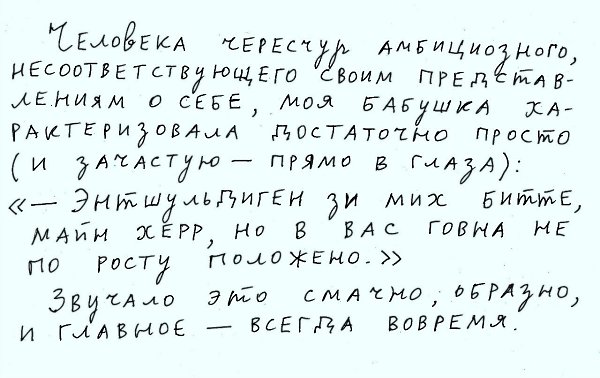 Человека чересчур амбициозного,
несоответствующего своим представ-
лениям о себе, моя бабушка ха-
рактеризовала достаточно просто
(и зачастую — прямо в глаза):
«— Энтшульдиген зи мих битте,
майн херр, но в вас говна не
по росту положено.»
Звучало это смачно, образно,
и главное — всегда вовремя.